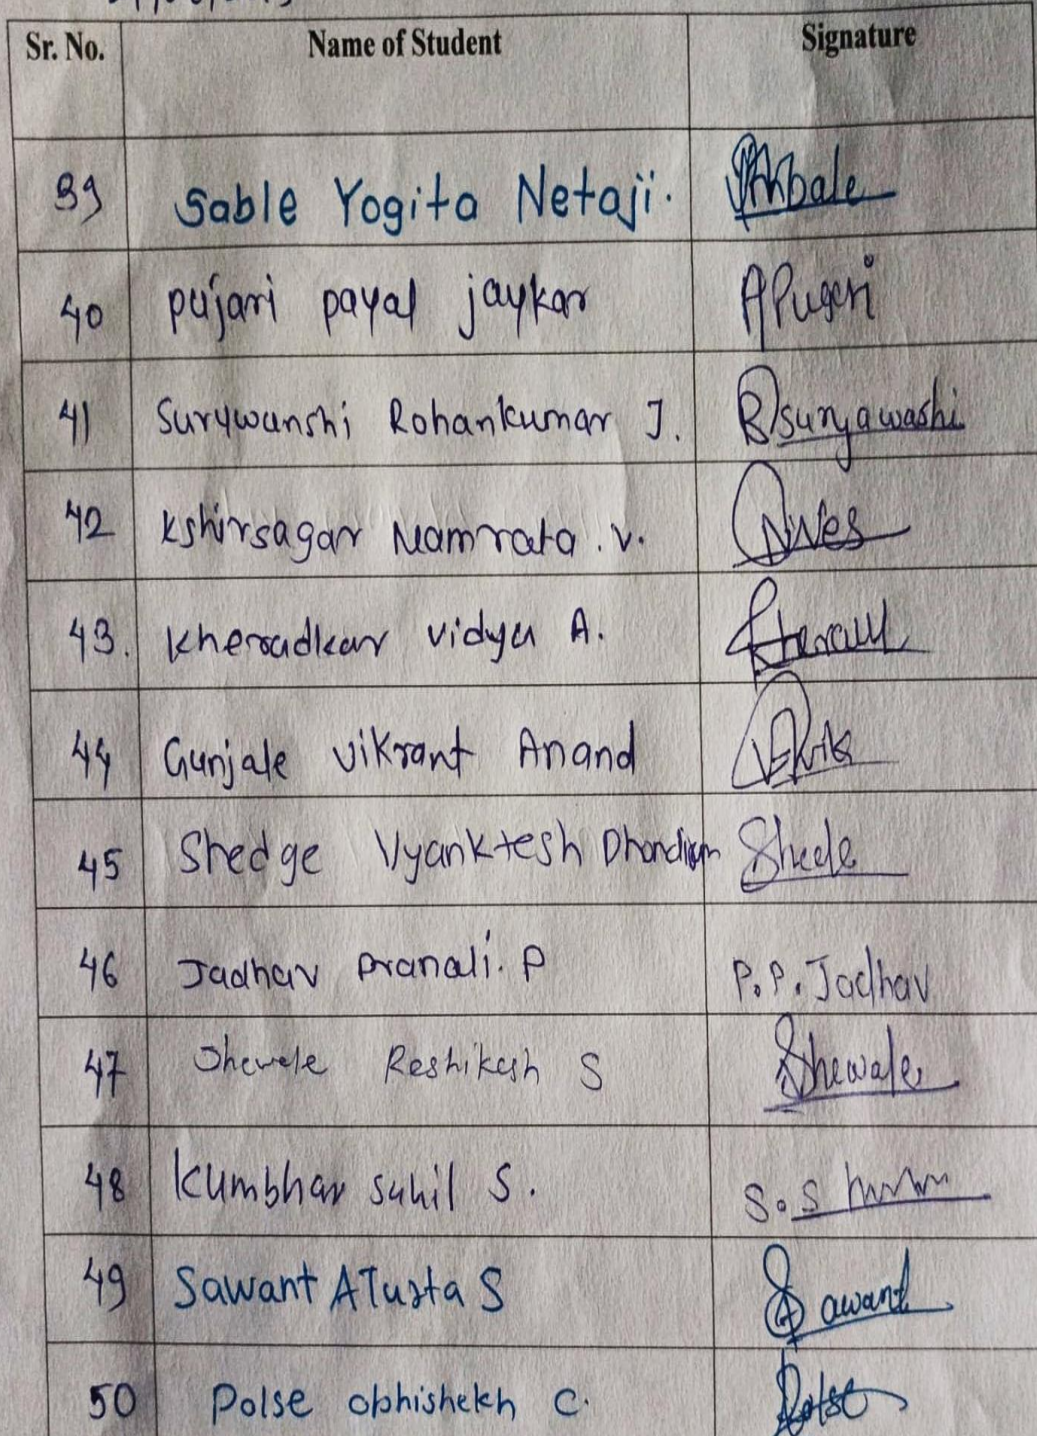 Sr. No. Name of Student Signature
39 Sable Yogita Netaji.
40 pujari payal jaykar APujari
41 Surywanshi Rohankumar J. R suryawashi
42 Kshirsagar Namrata . V.
43. Kheradkar vidya A.
44 Gunjale Vikrant Anand
45 Shedge Vyanktesh Dhondiram Shede
46 Jadhav Pranali. P P.P. Jadhav
47 Shewale Reshikesh S Shewale
48 Kumbhar Sahil S. S.S
49 Sawant S Sawant
50 Polse abhishekh C. Polse